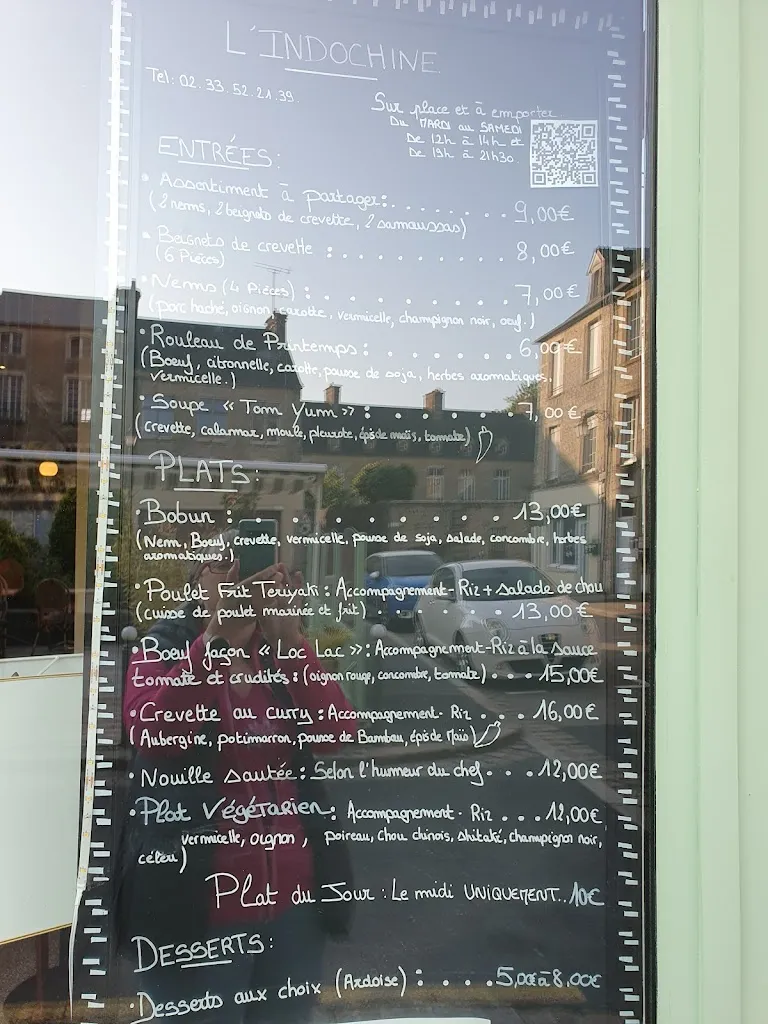 L'INDOCHINE
Tel: 02.33.52.21.39.
Sur place et à emporter
Du MARDI au SAMEDI
De 12h à 14h et
De 19h à 21h30
ENTRÉES:
• Assortiment à partager:........ 9,00€
(2 nems, 2 beignets de crevette, 2 samoussas)
• Beignets de crevette :........ 8,00€
(6 Pièces)
• Nems (4 Pièces) :........ 7,00€
(porc haché, oignon, carotte, vermicelle, champignon noir, oeuf.)
• Rouleau de Printemps:........ 6,00€
(Boeuf, citronnelle, carotte, pousse de soja, herbes aromatiques,
vermicelle.)
• Soupe « Tom Yum » :........ 7,00€
(crevette, calamar, moule, pleurote, épis de maïs, tomate)
PLATS:
• Bobun :........ 13,00€
(Nem, Boeuf, crevette, vermicelle, pousse de soja, salade, concombre, herbes
aromatiques.)
• Poulet Frit Teriyaki: Accompagnement- Riz + salade de chou
(cuisse de poulet marinée et frit)........ 13,00€
• Boeuf façon « Loc Lac »: Accompagnement-Riz à la sauce
tomate et crudités: (oignon rouge, concombre, tomate)... 15,00€
• Crevette au curry: Accompagnement- Riz... 16,00€
(Aubergine, potimarron, pousse de Bambau, épis de Maïs)
• Nouille sautée: Selon l'humeur du chef... 12,00€
• Plat Végétarien: Accompagnement- Riz... 12,00€
vermicelle, oignon, poireau, chou chinois, shitaké, champignon noir,
céleri)
Plat du Jour: Le midi UNIQUEMENT.. 10€
DESSERTS:
• Desserts aux choix (Ardoise) :.... 5,00€ à 8,00€